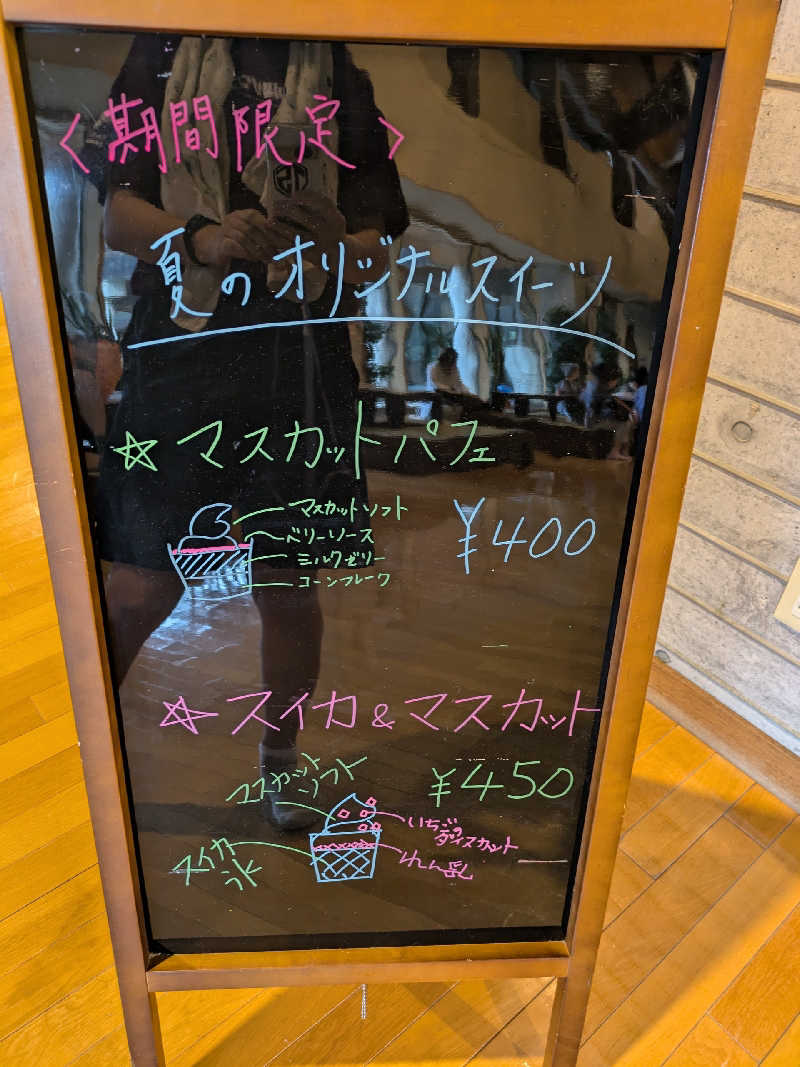 <期間限定>
夏のオリジナルスイーツ
☆マスカットパフェ
マスカットソフト
ベリーソース
ミルクゼリー
コーンフレーク
¥400
☆スイカ&マスカット
¥450
マスカット
ソフト
いちごの
ダイスカット
れん乳
スイカ
氷